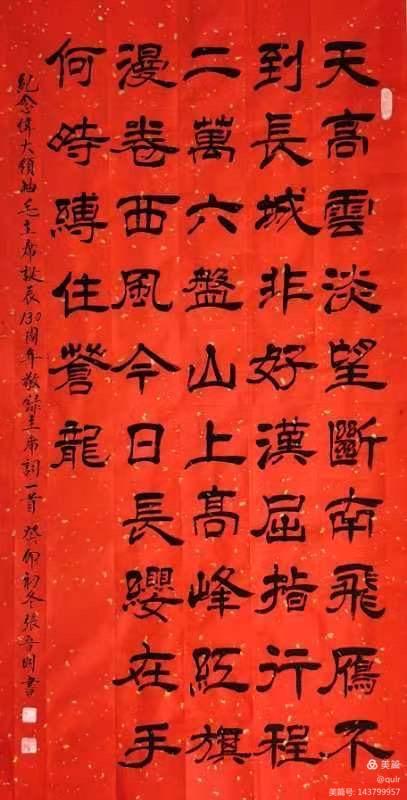 天高雲淡望斷南飛鴈不
到長城非好漢屈指行程
二萬六盤山上高峰紅旗
漫卷西風今日長纓在手
何時縛住蒼龍
紀念偉大領袖毛主席誕辰130周年敬録主席詞一首癸卯初冬張書
美篇
@quir
美篇号: 143799957